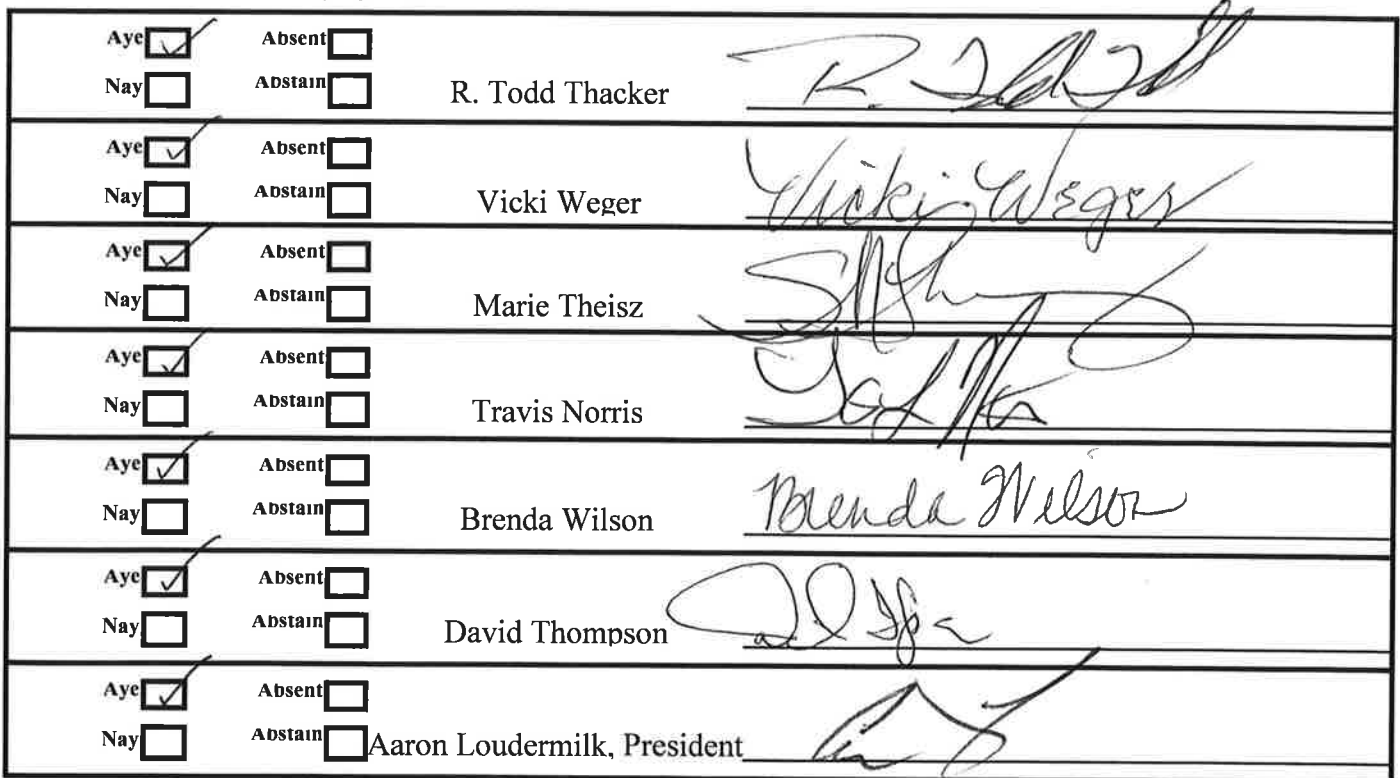 Aye Absent
Nay Abstain R. Todd Thacker R. Todd
Aye Absent
Nay Abstain Vicki Weger Vicki Weger
Aye Absent
Nay Abstain Marie Theisz
Aye Absent
Nay Abstain Travis Norris
Aye Absent
Nay Abstain Brenda Wilson Brenda Wilson
Aye Absent
Nay Abstain David Thompson
Aye Absent
Nay Abstain Aaron Loudermilk, President